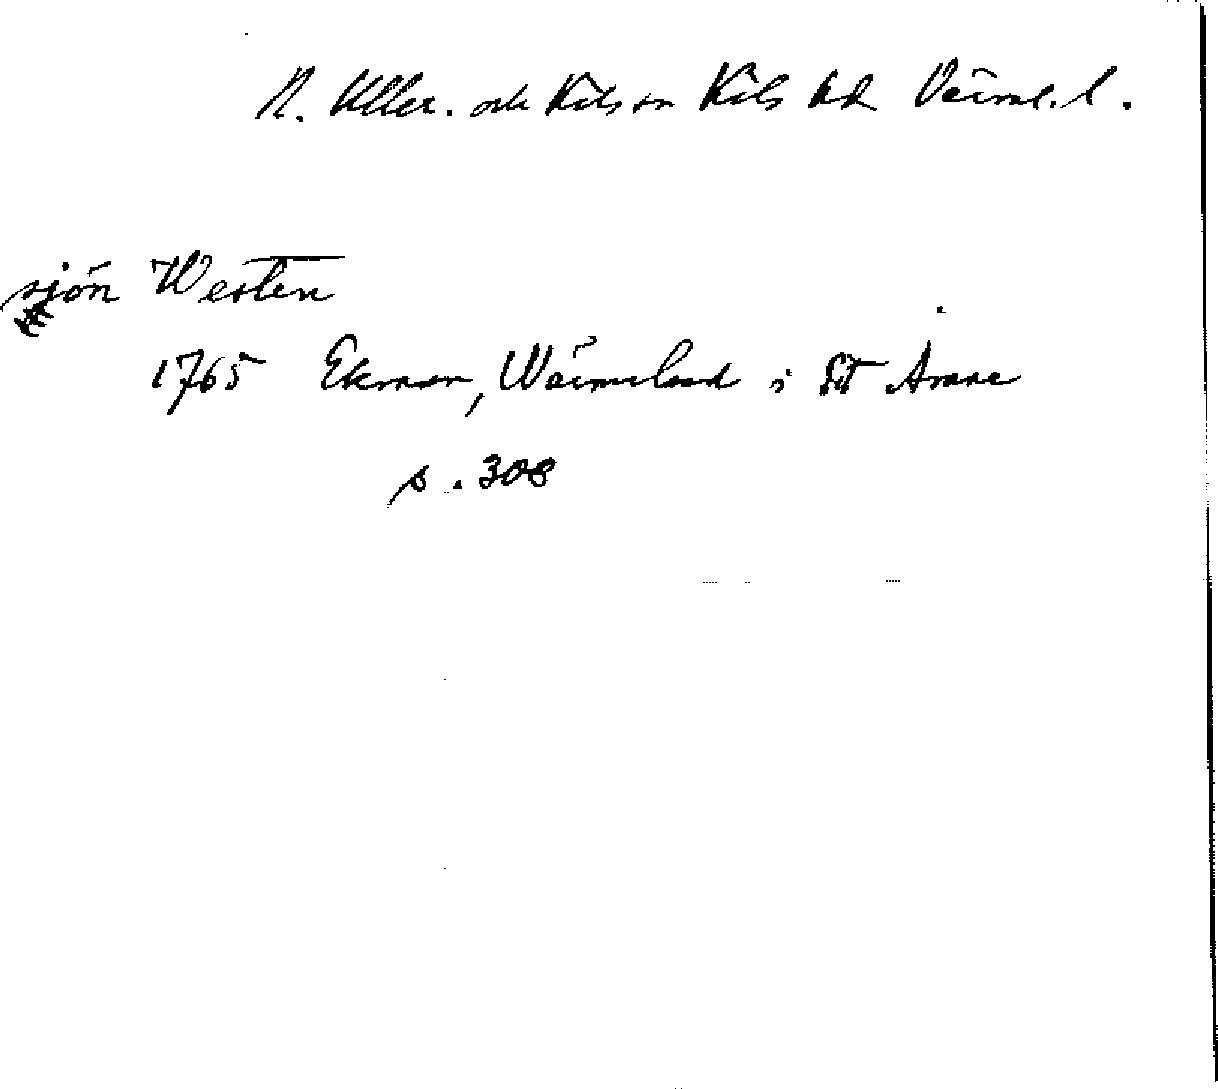 N. Uller. och Kils sn Kils hd Värml. l.
sjön Westen
1765 Ekman, Wärmeland i sitt Ämne
s. 308